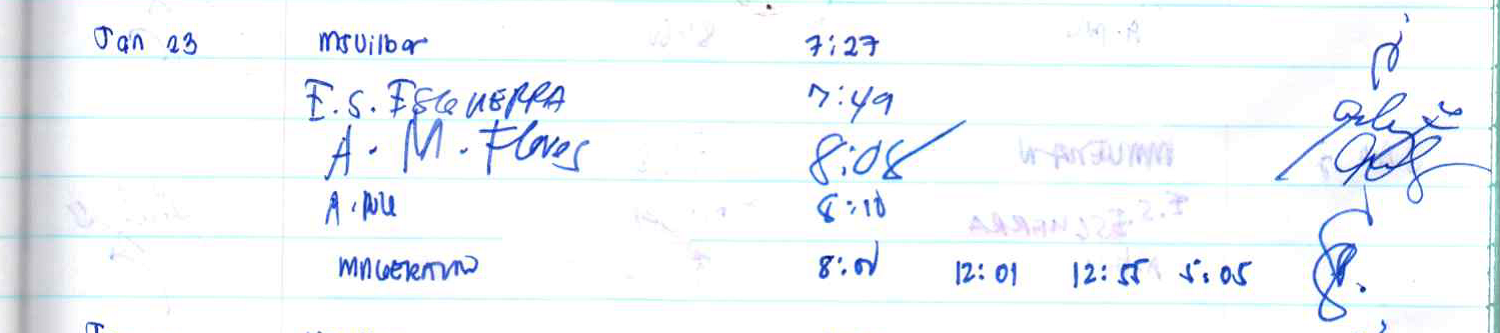 Jan 23 MSVilbar 7:27
E.S. ESGUERRA 7:49
A. M. Flores 8:08
8:10
12:01 12:55 5:05